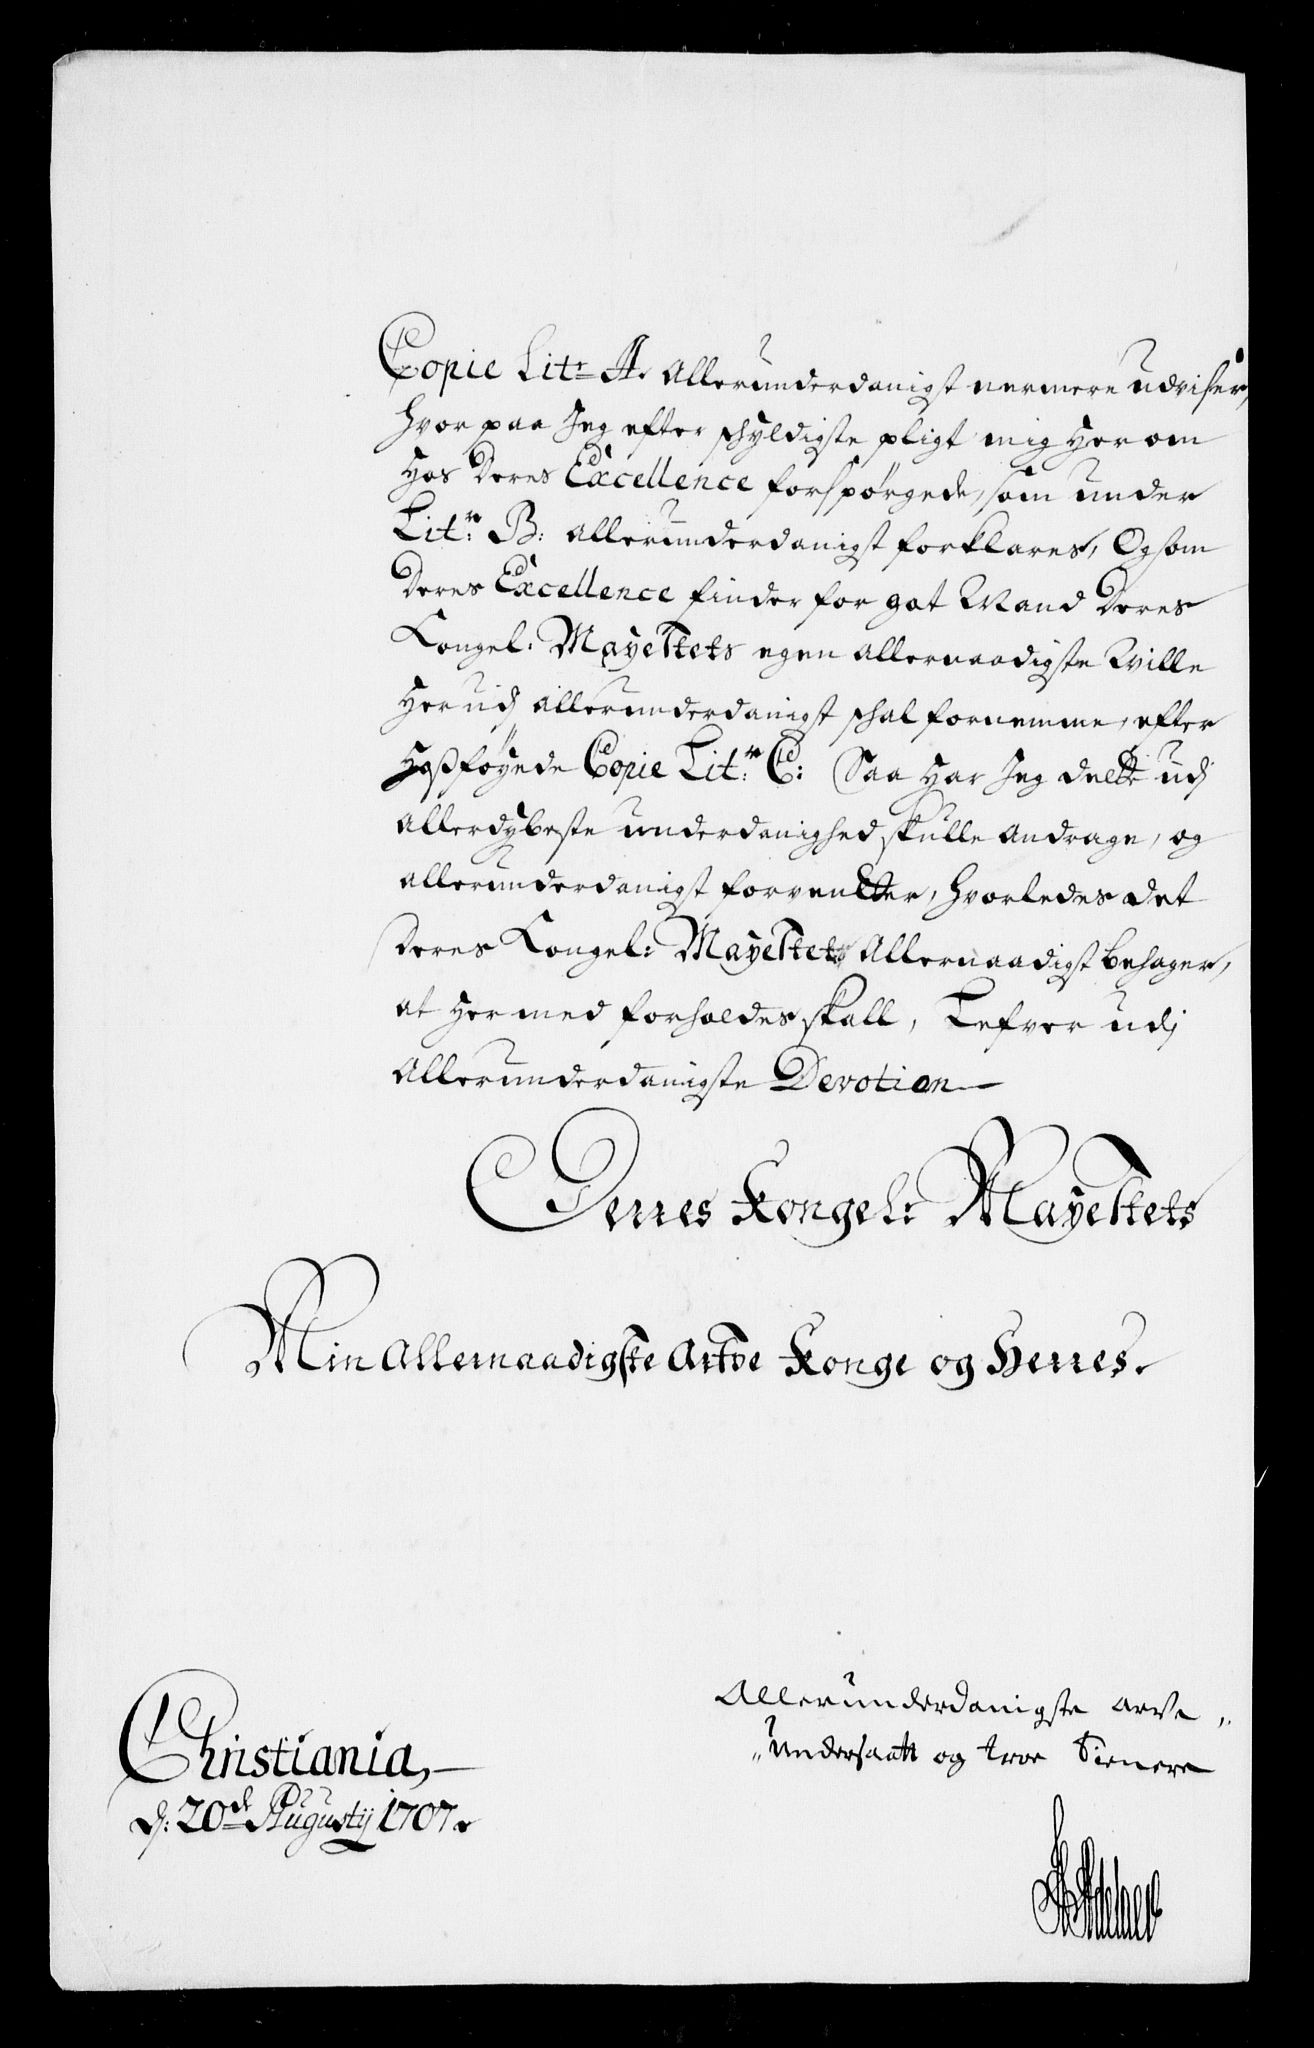 Copie Litr A. Allerunderdanigst nermere udviser,
hvor paa Jeg efter schyldigste pligt mig her om
hos Deres Excellence forspørgede, som under
Litr: B: allerunderdanigst forklares, Og som
Deres Excellence finder for got Mand Deres
Kongel. Mayestets egen allernaadigste Wille
her udj allerunderdanigst schal fornemme, efter
hosføyede Copie Litr: C: Saa har Jeg dette udj
allerdybeste underdanighed skulle andrage, og
allerunderdanigst forventter, hvorledes det
Deres Kongel: Mayestet Allernaadigst behager,
at hermed forholdes skall, Lefver udj
Allerunderdanigste Devotion
Derres Kongel: Mayestets
Min Allernaadigste Arfve Konge og Herres.
Allerunderdanigste arve
undersaatt og troe Tienere
Christiania,
d: 20de Augustij 1707.